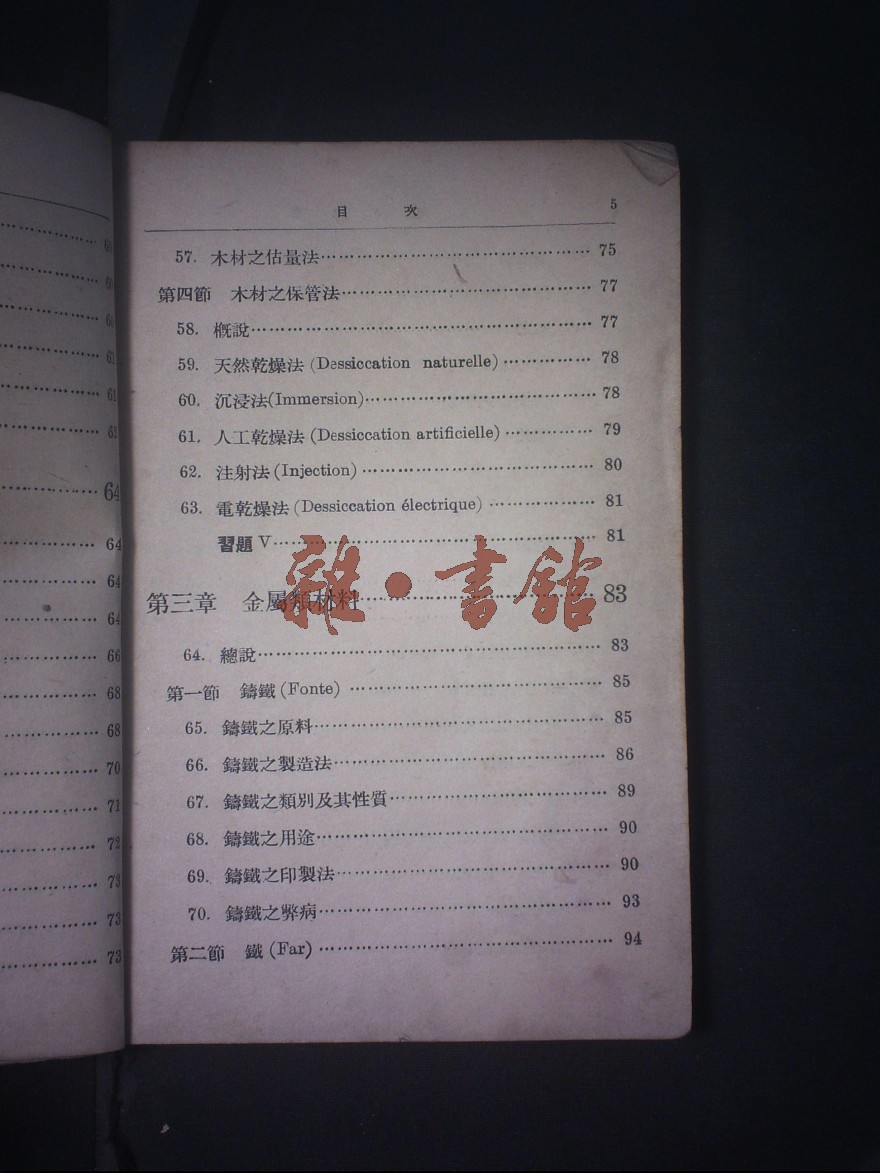 目 次 5
57. 木材之估量法 75
第四節 木材之保管法 77
58. 概說 77
59. 天然乾燥法 (Dessiccation naturelle) 78
60. 沉浸法 (Immersion) 78
61. 人工乾燥法 (Dessiccation artificielle) 79
62. 注射法 (Injection) 80
63. 電乾燥法 (Dessiccation électrique) 81
習題 V 81
第三章 金屬類材料 83
64. 總說 83
第一節 鑄鐵 (Fonte) 85
65. 鑄鐵之原料 85
66. 鑄鐵之製造法 86
67. 鑄鐵之類別及其性質 89
68. 鑄鐵之用途 90
69. 鑄鐵之印製法 90
70. 鑄鐵之弊病 93
第二節 鐵 (Far) 94
雜·書館
61
61
64
64
64
64
66
68
68
70
71
72
73
73
73